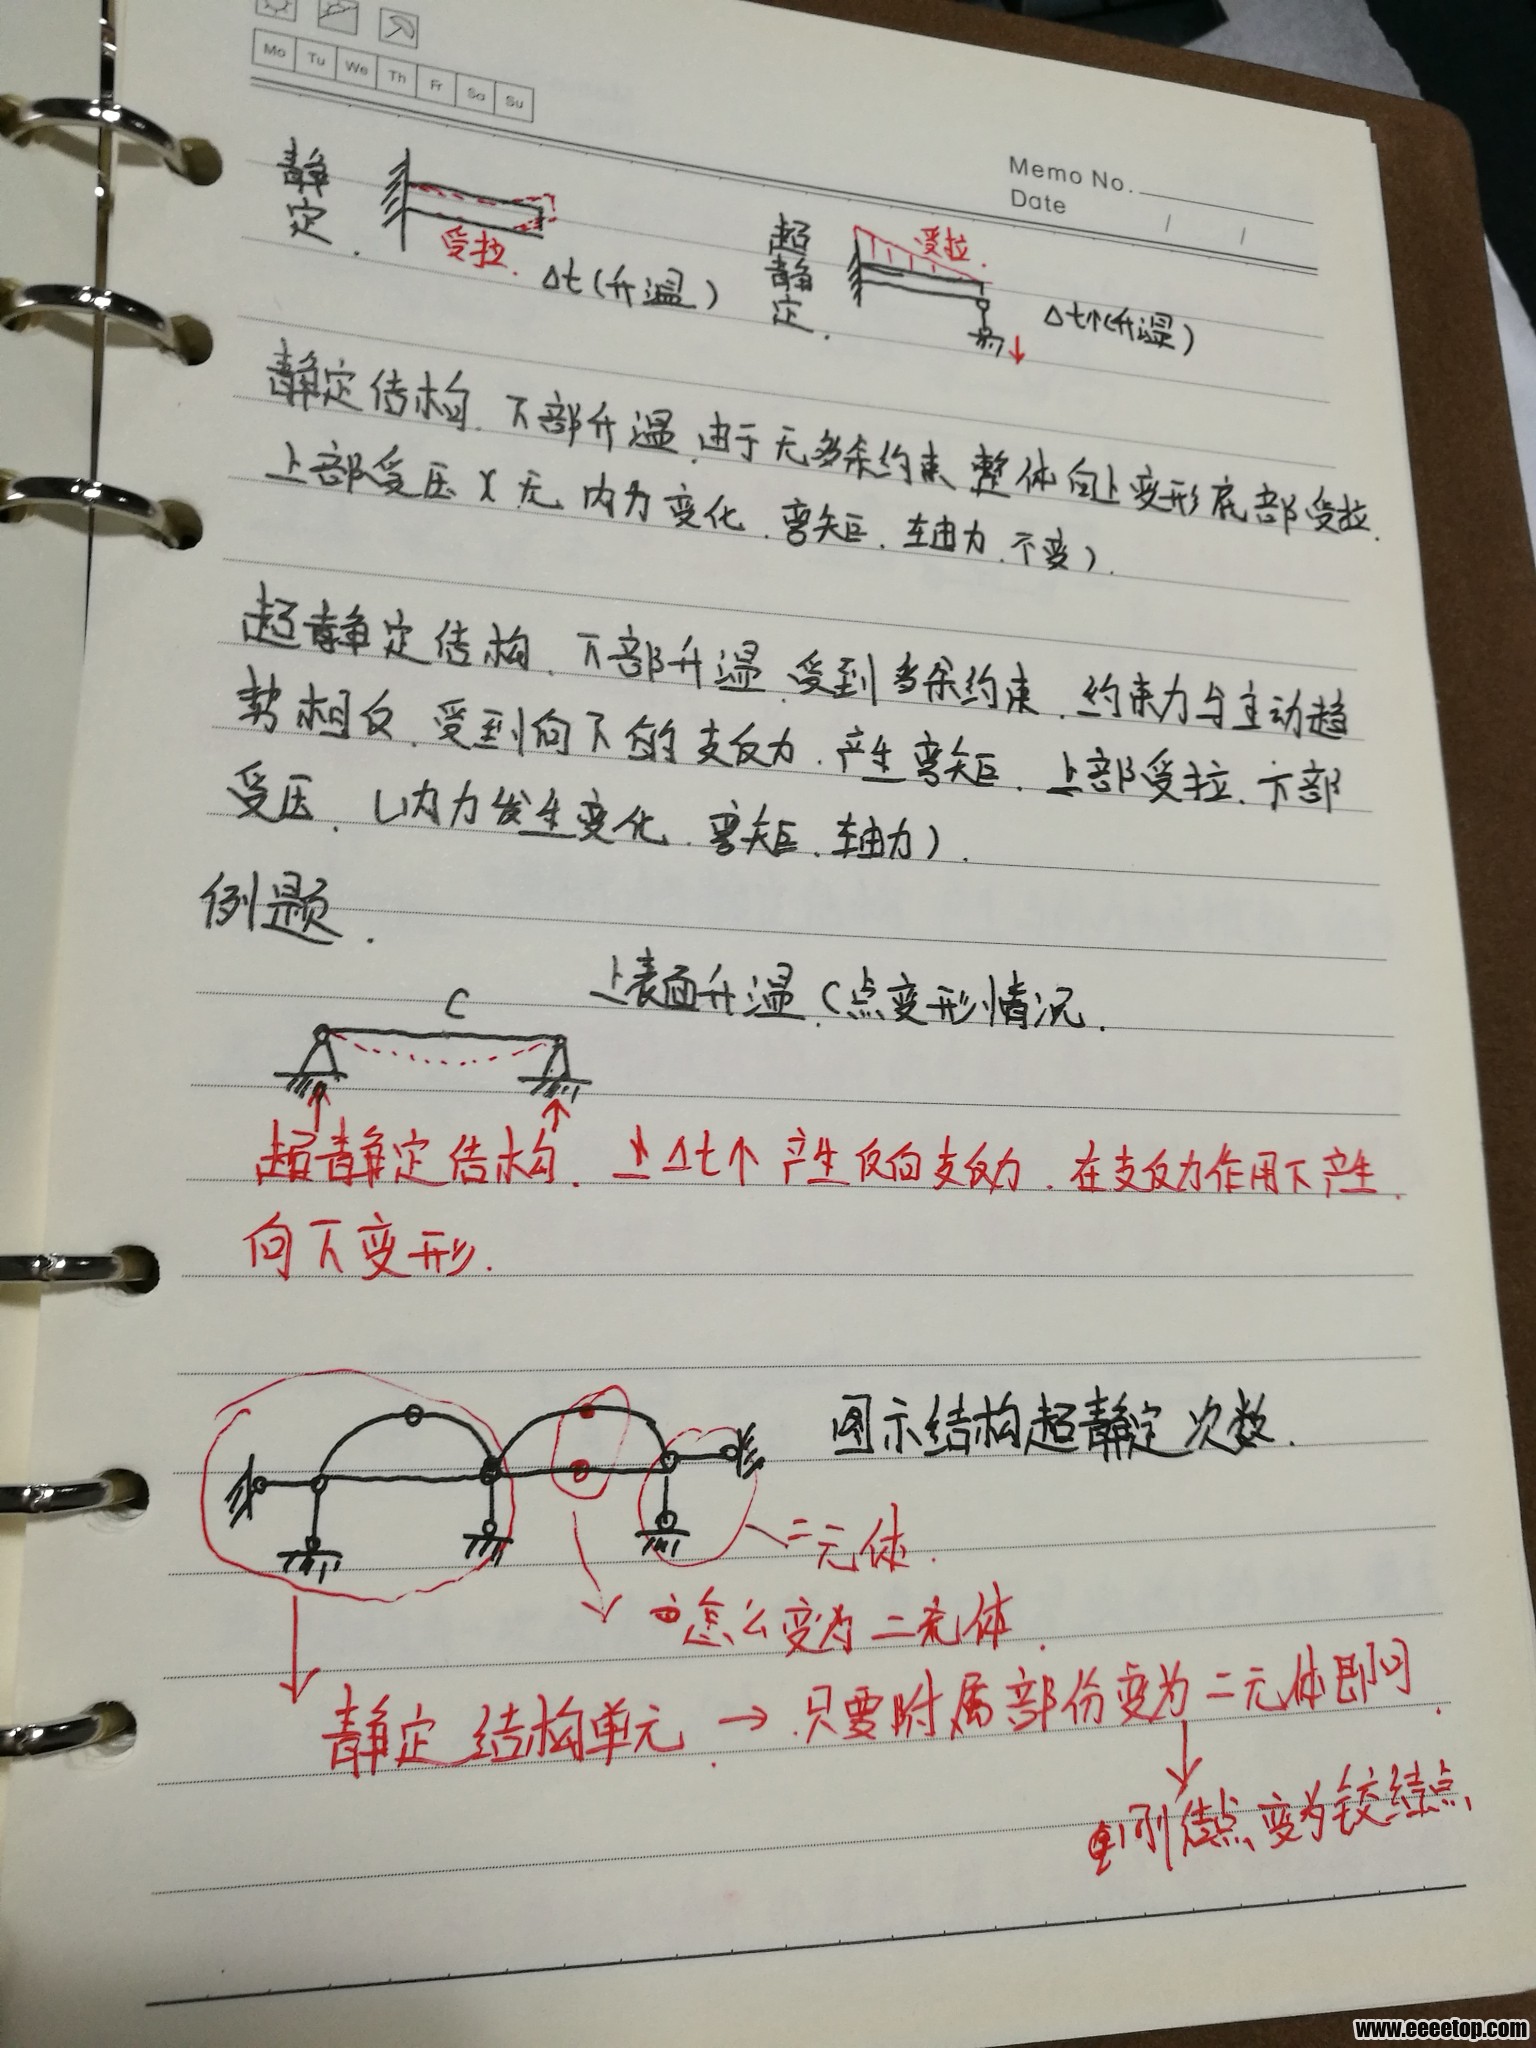 Mo Tu We Th Fr Sa Su
Memo No.
Date / /
静定.
受拉.
Δt(升温)
超静定.
受拉.
Δt↑(升温)
静定结构.下部升温.由于无多余约束 整体向上变形底部受拉.
上部受压(无内力变化.弯矩.轴力.不变).
超静定结构.下部升温.受到多余约束.约束力与主动趋
势相反.受到向下的支反力.产生弯矩.上部受拉.下部
受压.(内力发生变化.弯矩.轴力).
例题.
上表面升温.C点变形情况.
C
超静定结构.上Δt↑产生反向支反力.在支反力作用下产生.
向下变形.
图示结构超静定次数.
二元体.
怎么变为二元体.
静定结构单元.→只要附属部份变为二元体即可.
刚结点变为铰结点
www.eeeetop.com